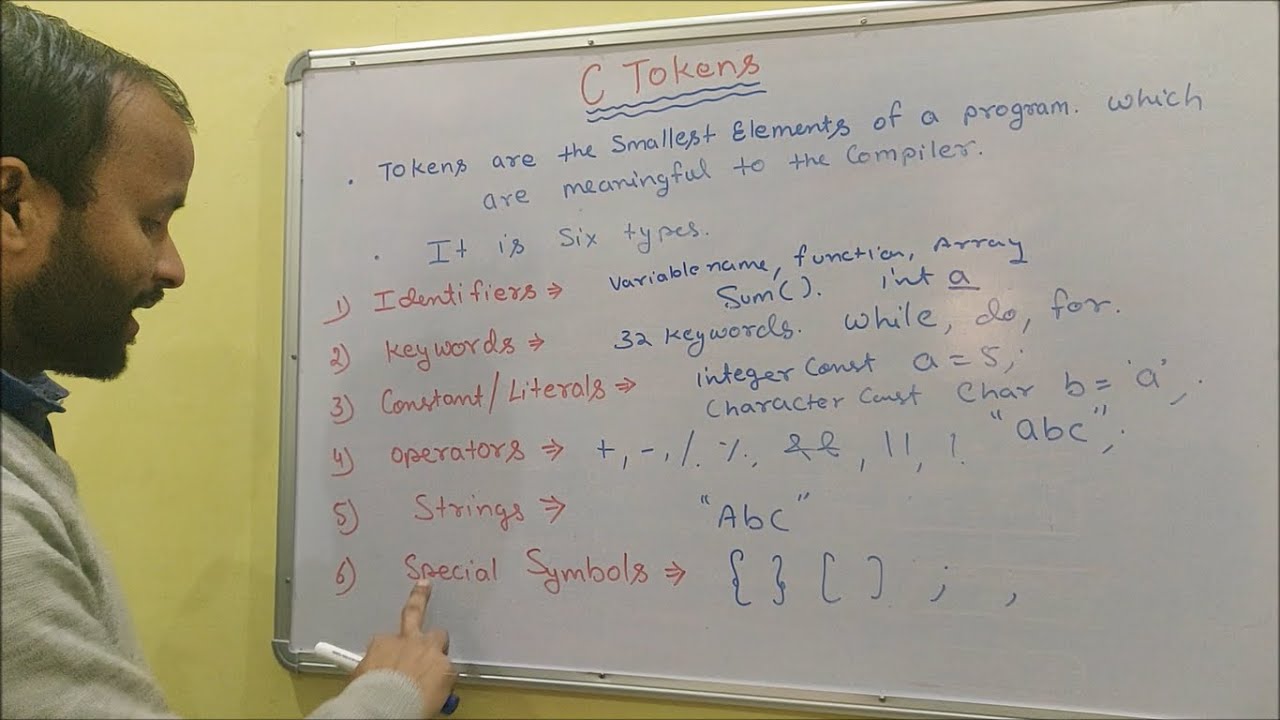 C Tokens
. Tokens are the Smallest Elements of a program. which
are meaningful to the Compiler.
. It is Six types.
1) Identifiers ⇒ Variable name, function, Array
Sum(). int a
2) Keywords ⇒ 32 Keywords. while, do, for.
3) Constant/Literals ⇒ integer Const a = 5;
Character Const Char b = 'a';
"abc";
4) operators ⇒ +, -, /, %, &&, ||, !
5) Strings ⇒ "Abc"
6) Special Symbols ⇒ { } [ ] ; ,